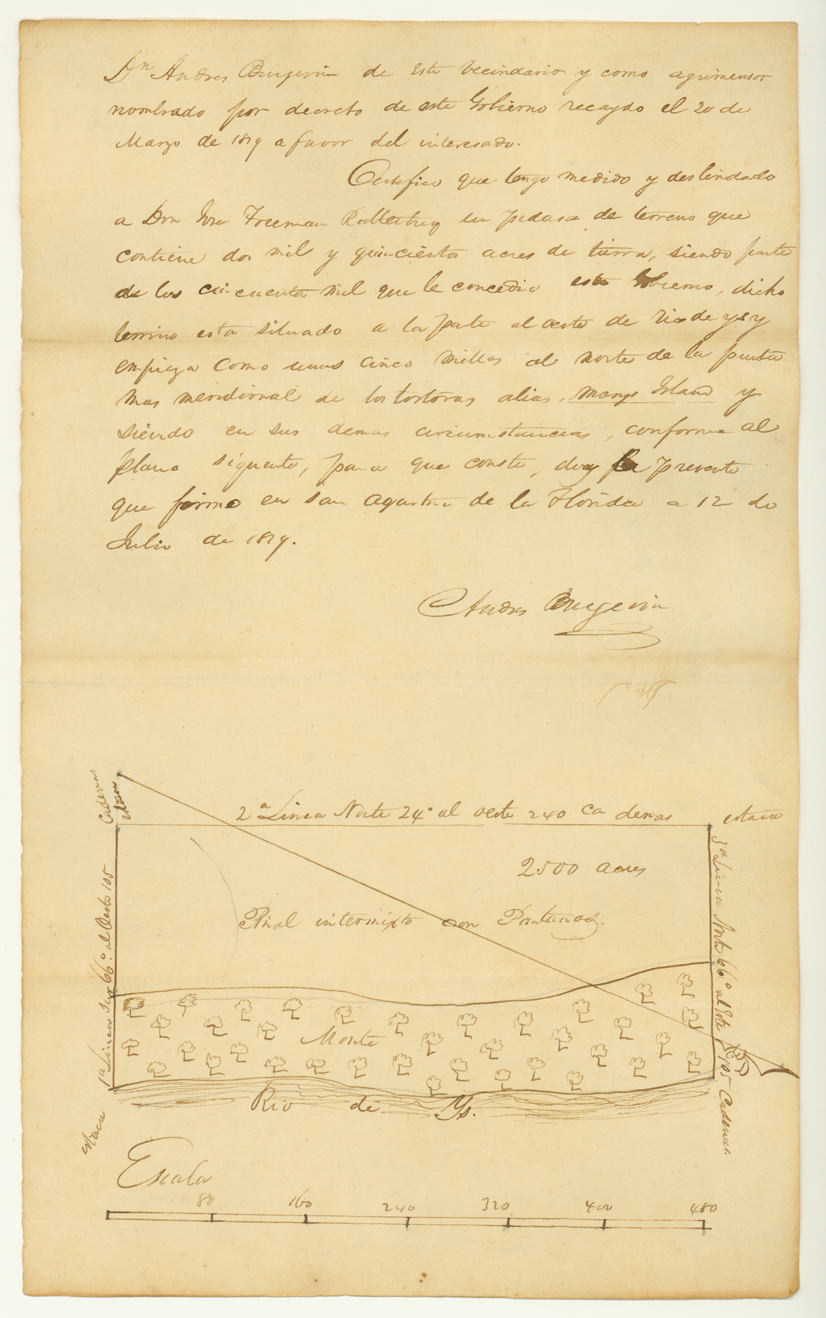 Dn Andres Burgevin de este vecindario y como agrimensor
nombrado por decreto de este Gobierno recaydo el 20 de
Marzo de 1819 a favor del interesado.
Certifico que tengo medido y deslindado
a Don Jose Freeman un pedaso de terreno que
contiene dos mil y quincientos acres de tierra, siendo parte
de los cincuenta mil que le concedio este Gobierno, dicho
terreno esta situado a la parte al oeste de Rio de ys y
empieza como unas cinco millas al norte de la punta
mas meridional de las tortoras alias
siendo en sus demas circumstancias, conforme al
plano siguente, para que conste, doy la presente
que firmo en san Agustin de la Florida a 12 de
Julio de 1819.
Andres Burgevin
2a Linea Norte 24° al oeste 240 cadenas estaca
Cadenas
estaca
2500 acres
Pinal intermixto con Pantanos.
1a Linea Sur 66° al Oeste 105
3a Linea Norte 66° al Este 105 Cadenas
Monte
Rio de Ys.
estaca
Escala
80 160 240 320 400 480